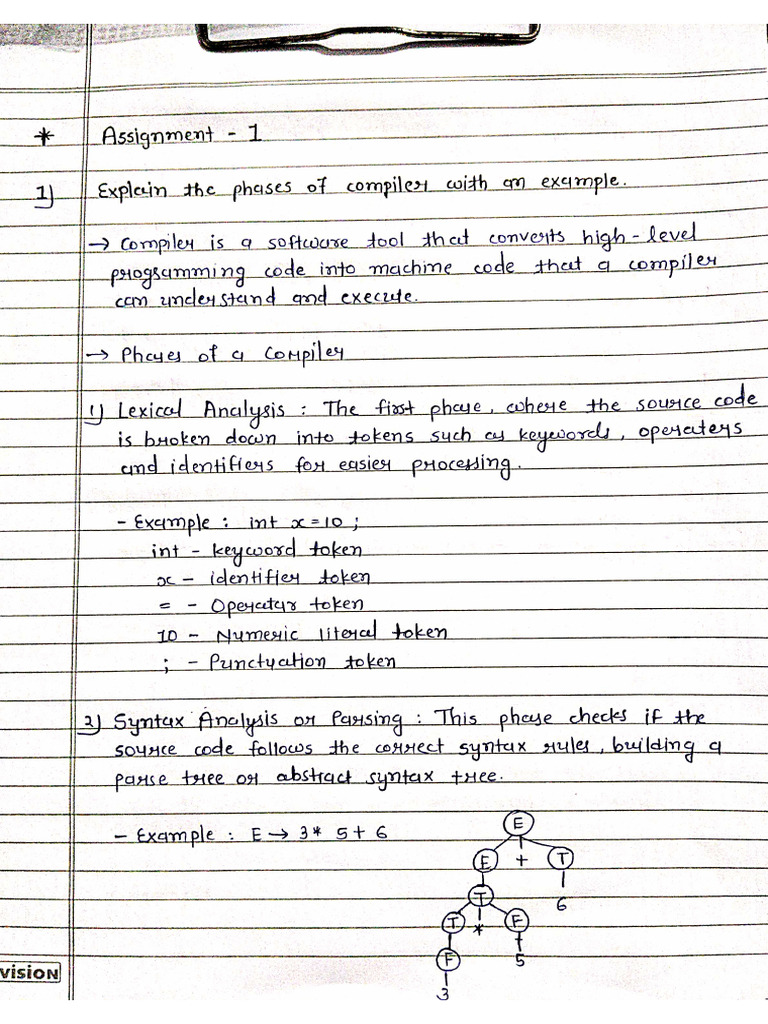 * Assignment - 1
1) Explain the phases of compiler with an example.
→ Compiler is a software tool that converts high-level
programming code into machine code that a compiler
can understand and execute.
→ Phases of a Compiler
1) Lexical Analysis : The first phase, where the source code
is broken down into tokens such as keywords, operaters
and identifiers for easier processing.
- Example : int x=10 ;
int - keyword token
x - identifier token
= - Operator token
10 - Numeric literal token
; - Punctuation token
2) Syntax Analysis or Parsing : This phase checks if the
source code follows the correct syntax rules, building a
parse tree or abstract syntax tree.
- Example : E → 3* 5 + 6
E
E + T
T 6
T * F
F 5
3
vision